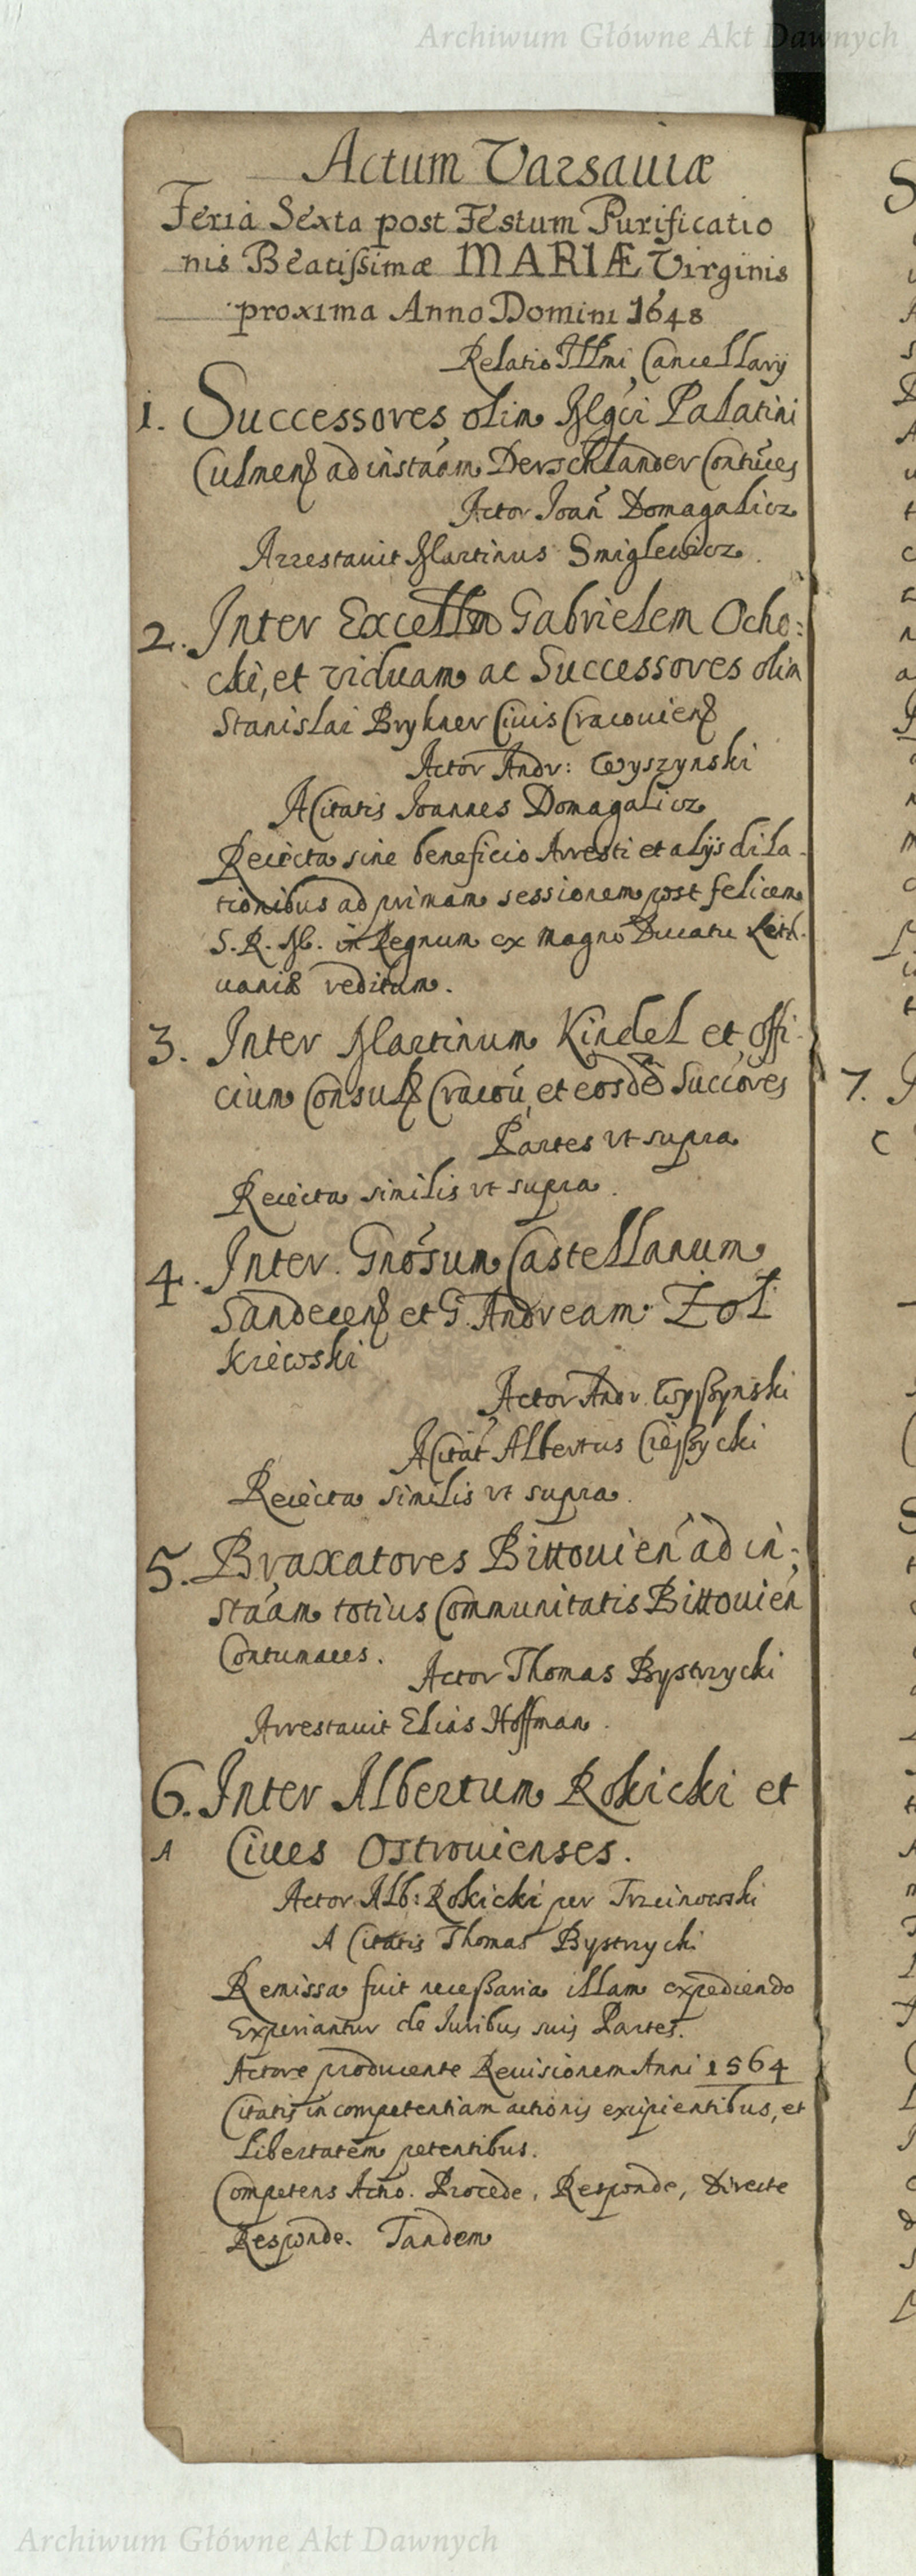 Archiwum Główne Akt Dawnych
Actum Varsaviæ
Feria Sexta post Festum Purificatio
nis Beatissimæ MARIÆ Virginis
proxima Anno Domini 1648
Relatio Illmi Cancellarij
1. Successores olim Mgci Palatini
Culmens ad instãam Derschlander Contũces
Actor Joan Domagalicz
Arrestavit Martinus Smiglewicz.
2. Inter Excellm Gabrielem Ocho:
cki, et viduam ac Successores olim
Stanislai Brykner Civis Cracoviens
Actor Andr: Wyszynski
A Citatis Joannes Domagalicz
Reiecta sine beneficio Arresti et alijs dila-
tionibus ad primam sessionem post felicem
S. R. M. in Regnum ex Magno Ducatu Lith-
uaniæ reditum.
3. Inter Martinum Kindel et offi-
cium Consuls Cracou, et eosde Succores
Partes vt supra
Reiecta similis vt supra.
4. Inter Gnosum Castellanum
Sandecens et G. Andream Zoł
kiewski
Actor Andr. Wyßynski
A Citat Albertus Cießycki
Reiecta similis vt supra.
5. Braxatores Bittouien ad in;
stãam totius Communitatis Bittouien
Contumaces. Actor Thomas Bystrzycki
Arrestavit Elias Hoffman.
6. Inter Albertum Rokicki et
A Ciues Ostrouienses.
Actor Alb: Rokicki per Trzcinowski
A Citatis Thomas Bystrzycki
Remissa fuit necessaria illam expediendo
Experiantur de Iuribus suis Partes.
Actore producente Reuisionem Anni 1564
Citatis incompetentiam actionis excipientibus, et
Libertatem petentibus.
Competens Actio. Procede, Responde, Directe
Responde. Tandem
7.
Archiwum Główne Akt Dawnych